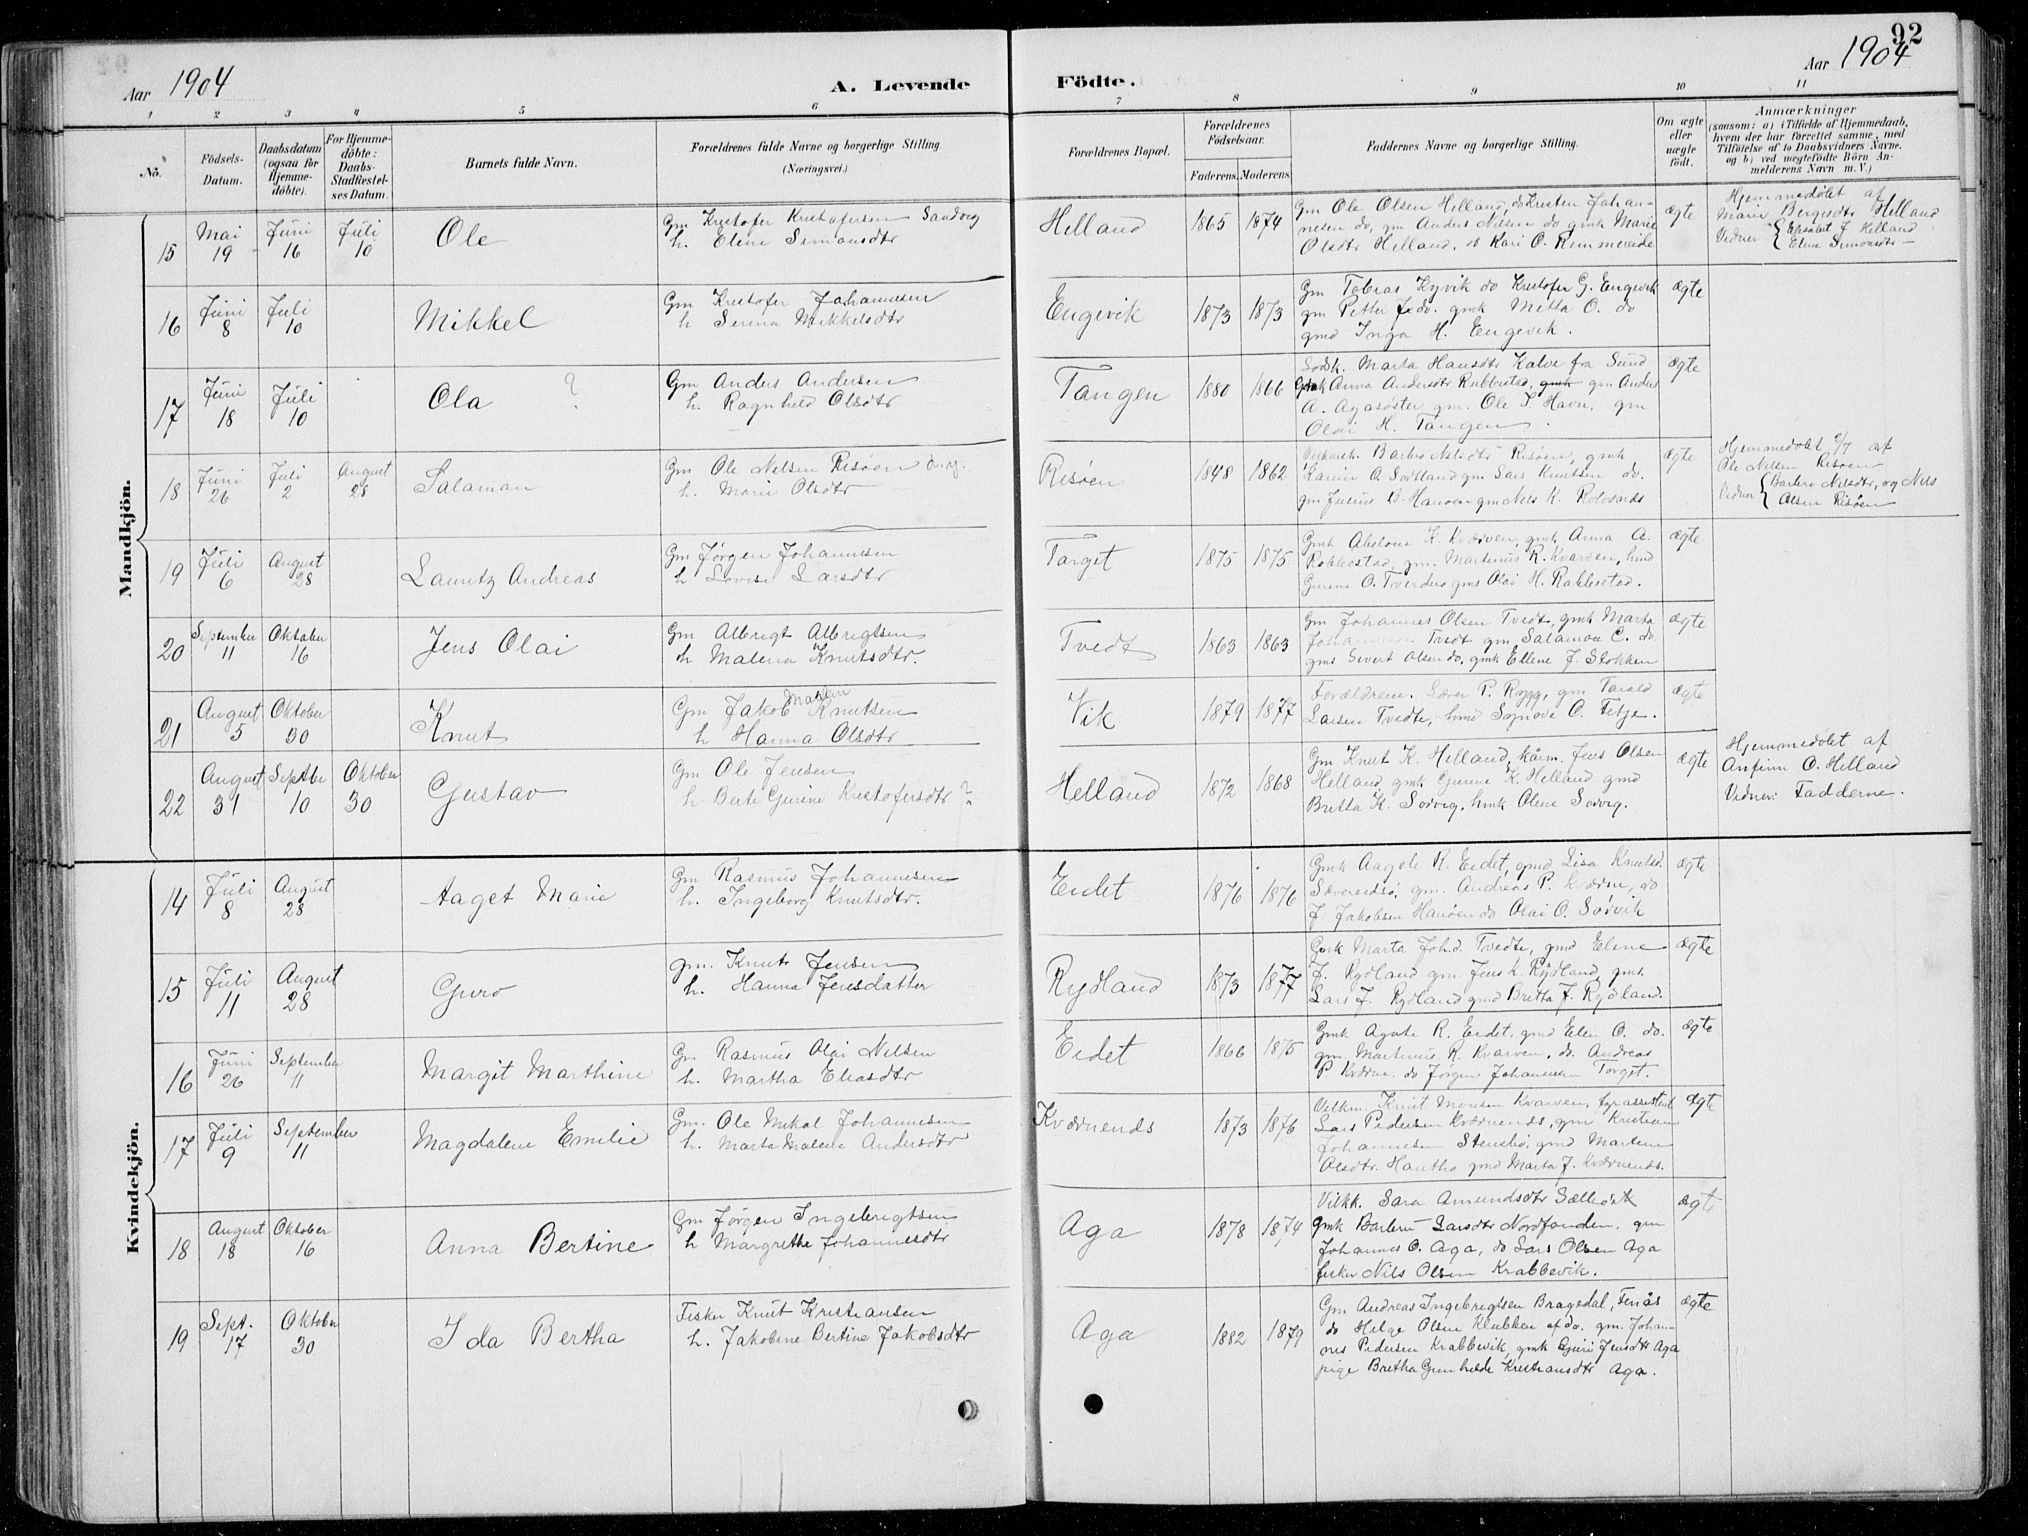 92
Aar 1904
A. Levende
Födte.
Aar 1904
1 2 3 4 5 6 7 8 9 10 11
No.
Födsels-Datum.
Daabsdatum (ogsaa for Hjemme-döbte).
For Hjemme-döbte: Daabs-Stadfæstel-ses Datum.
Barnets fulde Navn.
Forældrenes fulde Navne og borgerlige Stilling.
(Næringsvei.)
Forældrenes Bopæl.
Forældrenes Födselsaar.
Faderens. Moderens.
Faddernes Navne og borgerlige Stilling.
Om ægte eller uægte födt.
Anmærkninger
(saasom: a) i Tilfælde af Hjemmedaab,
hvem der har forrettet samme, med
Tilföielse af to Daabsvidners Navne.
og b) ved uægtefödte Börn An-
melderens Navn m. V.)
Mandkjön.
15 Mai 19 Juni 16 Juli 10 Ole
Gm Kristofer Kristofersen Sandvig
h. Elene Simonsdtr
Helland 1865 1874
Gm Ole Olsen Helland, do Kristen Johan-
nesen do, gm Anders Nilsen do gmk Marie
Olsdtr Helland, do Kari O. Remmereide
ægte
Hjemmedøbt af
Marie Bergesdtr Helland
Vidner Elisabet J Helland
Elene Simonsdtr
16 Juni 8 Juli 10 Mikkel
Gm Kristofer Johannesen
h Serina Mikkelsdtr
Engevik 1873 1873
Gm Tobias Kyvik do Kristofer G. Engevik
gm Petter J. do. gmk Mitta O. do
gmd Inga H. Engevik.
ægte
17 Juni 18 Juli 10 Ola ?
Gm Anders Andersen
h. Ragnhild Olsdtr
Tangen 1880 1866
Marta Hansdtr Kalve fra Sund
Gmk Anna Andersdtr Rubbestad, gmk gm Anders
A. Agasøster gm. Ole S. Havn, gm
Olai H. Tangen.
ægte
18 Juni 26 Juli 2 August 28 Salamon
Gm Ole Nilsen Risøen
h. Marie Olsdtr
Risøen 1848 1862
Barbro Nilsdtr Risøen, gmk
Karine O. Sortland gm Lars Knutsen do.
gm Julius O. Hanøen gm Nils K. Rolvsnes
ægte
Hjemmedøbt 2/7 af
Ole Nilsen Risøen
Vidner Barbro Nilsdtr, og Nils
Olsen Risøen
19 Juli 6 August 28 Lauritz Andreas
Gm Jørgen Johannesen
h Lovise Larsdtr
Torget 1875 1875
Gmk Abelone K. Kværven, gmk Anna A.
Rabbestad, gm. Martinus R. Kvarven, hmd
Gurine O. Tverderø gms Olai H. Rabbestad.
ægte
20 September 11 Oktober 16 Jens Olai
Gm Albrigt Albrigtsen
h Malena Knutsdtr.
Tvedt 1863 1863
Gm Johannes Olsen Tvedt, gmk Marta
Johannesen Tvedt gm Salamon C. do.
gms Sivert Olsen do, gmk Ellene J. Stokken
ægte
21 August 5 Oktober 30 Knut
Gm Jakob Martin Knutsen
h Hanna Olsdtr
Vik 1879 1877
Forældrene. Lærer P. Rygg, gm Tarald
Larsen Tvedte, hmd Synove O. Fitje.
ægte
22 August 31 Septbr 10 Oktober 30 Gustav
Gm Ole Jensen
h. Berte Gurine Kristofersdtr ?
Helland 1872 1868
Gm Knut K. Helland, kårm. Jens Olsen
Helland, gmk Gurine K. Helland gmd
Britta K. Sørvig, hmk Olene Sørvig.
ægte
Hjemmedøbt af
Anfinn O. Helland
Vidner: Fadderne.
Kvindekjön.
14 Juli 8 August 28 Aaget Marie
Gm Rasmus Johannesen
h. Ingeborg Knutsdtr.
Eidet 1876 1876
Gmk Aagete R. Eidet, gmd Lisa Knutsd.
Sævereidsø, gm. Andreas P. Kværne, do
J. Jakobsen Hanøen do Olai O. Sørvik
ægte
15 Juli 11 August 28 Guro
gm. Knut Jensen
h. Hanna Jensdatter
Rydland 1873 1877
Gmk Marta Johd. Tvedte, gmd Elene
J. Rydland gm Jens K. Rydland, gmt.
Lars J. Rydland gmd Britta J. Rydland.
ægte
16 Juni 26 September 11 Margit Marthine
Gm Rasmus Olai Nilsen
h. Martha Eliasdtr
Eidet 1866 1875
Gmk Agate R. Eidet, gmd Elen O. do.
gm Martinus R. Kvarven, do. Andreas
P. Kværne. do Jørgen Johannesen Torget.
ægte
17 Juli 9 September 11 Magdalene Emilie
Gm. Ole Mikal Johannesen
h. Marta Malene Andersdtr
Kværnends 1873 1876
Knut Monsen Kvarven, fyrassistent
Lars Pedersen Kværnends, gm Kristian
Johannesen Stensbø, gmd Martine
Olsdtr. Hantho gmd Marta J. Kværnends.
ægte
18 August 18 Oktober 16 Anna Bertine
Gm Jørgen Ingebrigtsen
h Margrethe Johannesdtr
Aga 1878 1874
Sara Amundsdtr Sælleøsk
gmk Barbru Larsdtr Nordfonden, gm
Johannes O. Aga, do Lars Olsen Aga
fisker Nils Olsen Krabbevik.
ægte
19 Sept. 17 Oktober 30 Ida Bertha
Fisker Knut Kristiansen
h. Jakobine Bertine Jakobsdtr
Aga 1882 1879
Gm Andreas Ingebrigtsen Bragedal, Fenås
do Helge Olsen Klubben af do. gm. Johan-
nes Pedersen Krabbevik, gmk Guri Jensdtr Aga
pige Bretha Gunhilde Kristiansdtr Aga.
ægte